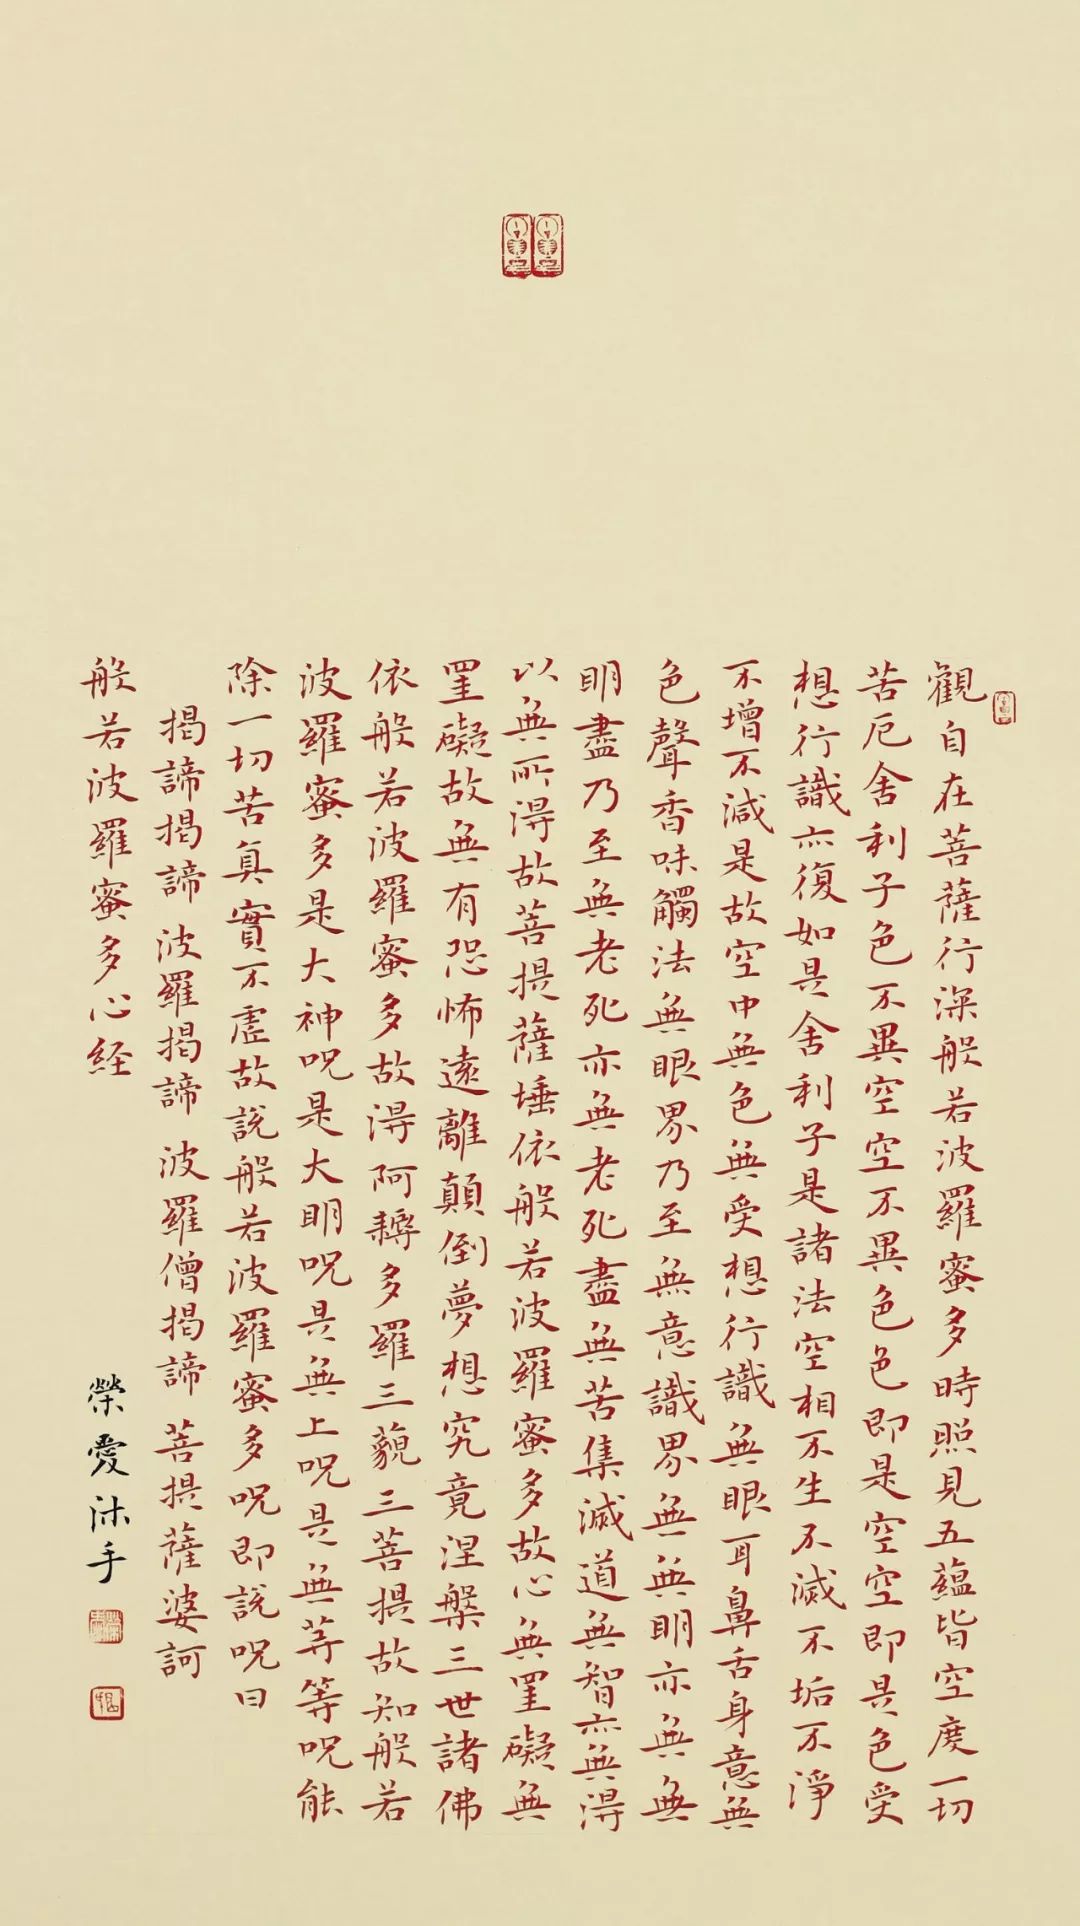 觀自在菩薩行深般若波羅蜜多時照見五蘊皆空度一切
苦厄舍利子色不異空空不異色色即是空空即是色受
想行識亦復如是舍利子是諸法空相不生不滅不垢不淨
不增不減是故空中無色無受想行識無眼耳鼻舌身意無
色聲香味觸法無眼界乃至無意識界無無明亦無無
明盡乃至無老死亦無老死盡無苦集滅道無智亦無得
以無所得故菩提薩埵依般若波羅蜜多故心無罣礙無
罣礙故無有恐怖遠離顛倒夢想究竟涅槃三世諸佛
依般若波羅蜜多故得阿耨多羅三藐三菩提故知般若
波羅蜜多是大神咒是大明咒是無上咒是無等等咒能
除一切苦真實不虛故說般若波羅蜜多咒即說咒曰
揭諦揭諦 波羅揭諦 波羅僧揭諦 菩提薩婆訶
般若波羅蜜多心経
榮愛沐手